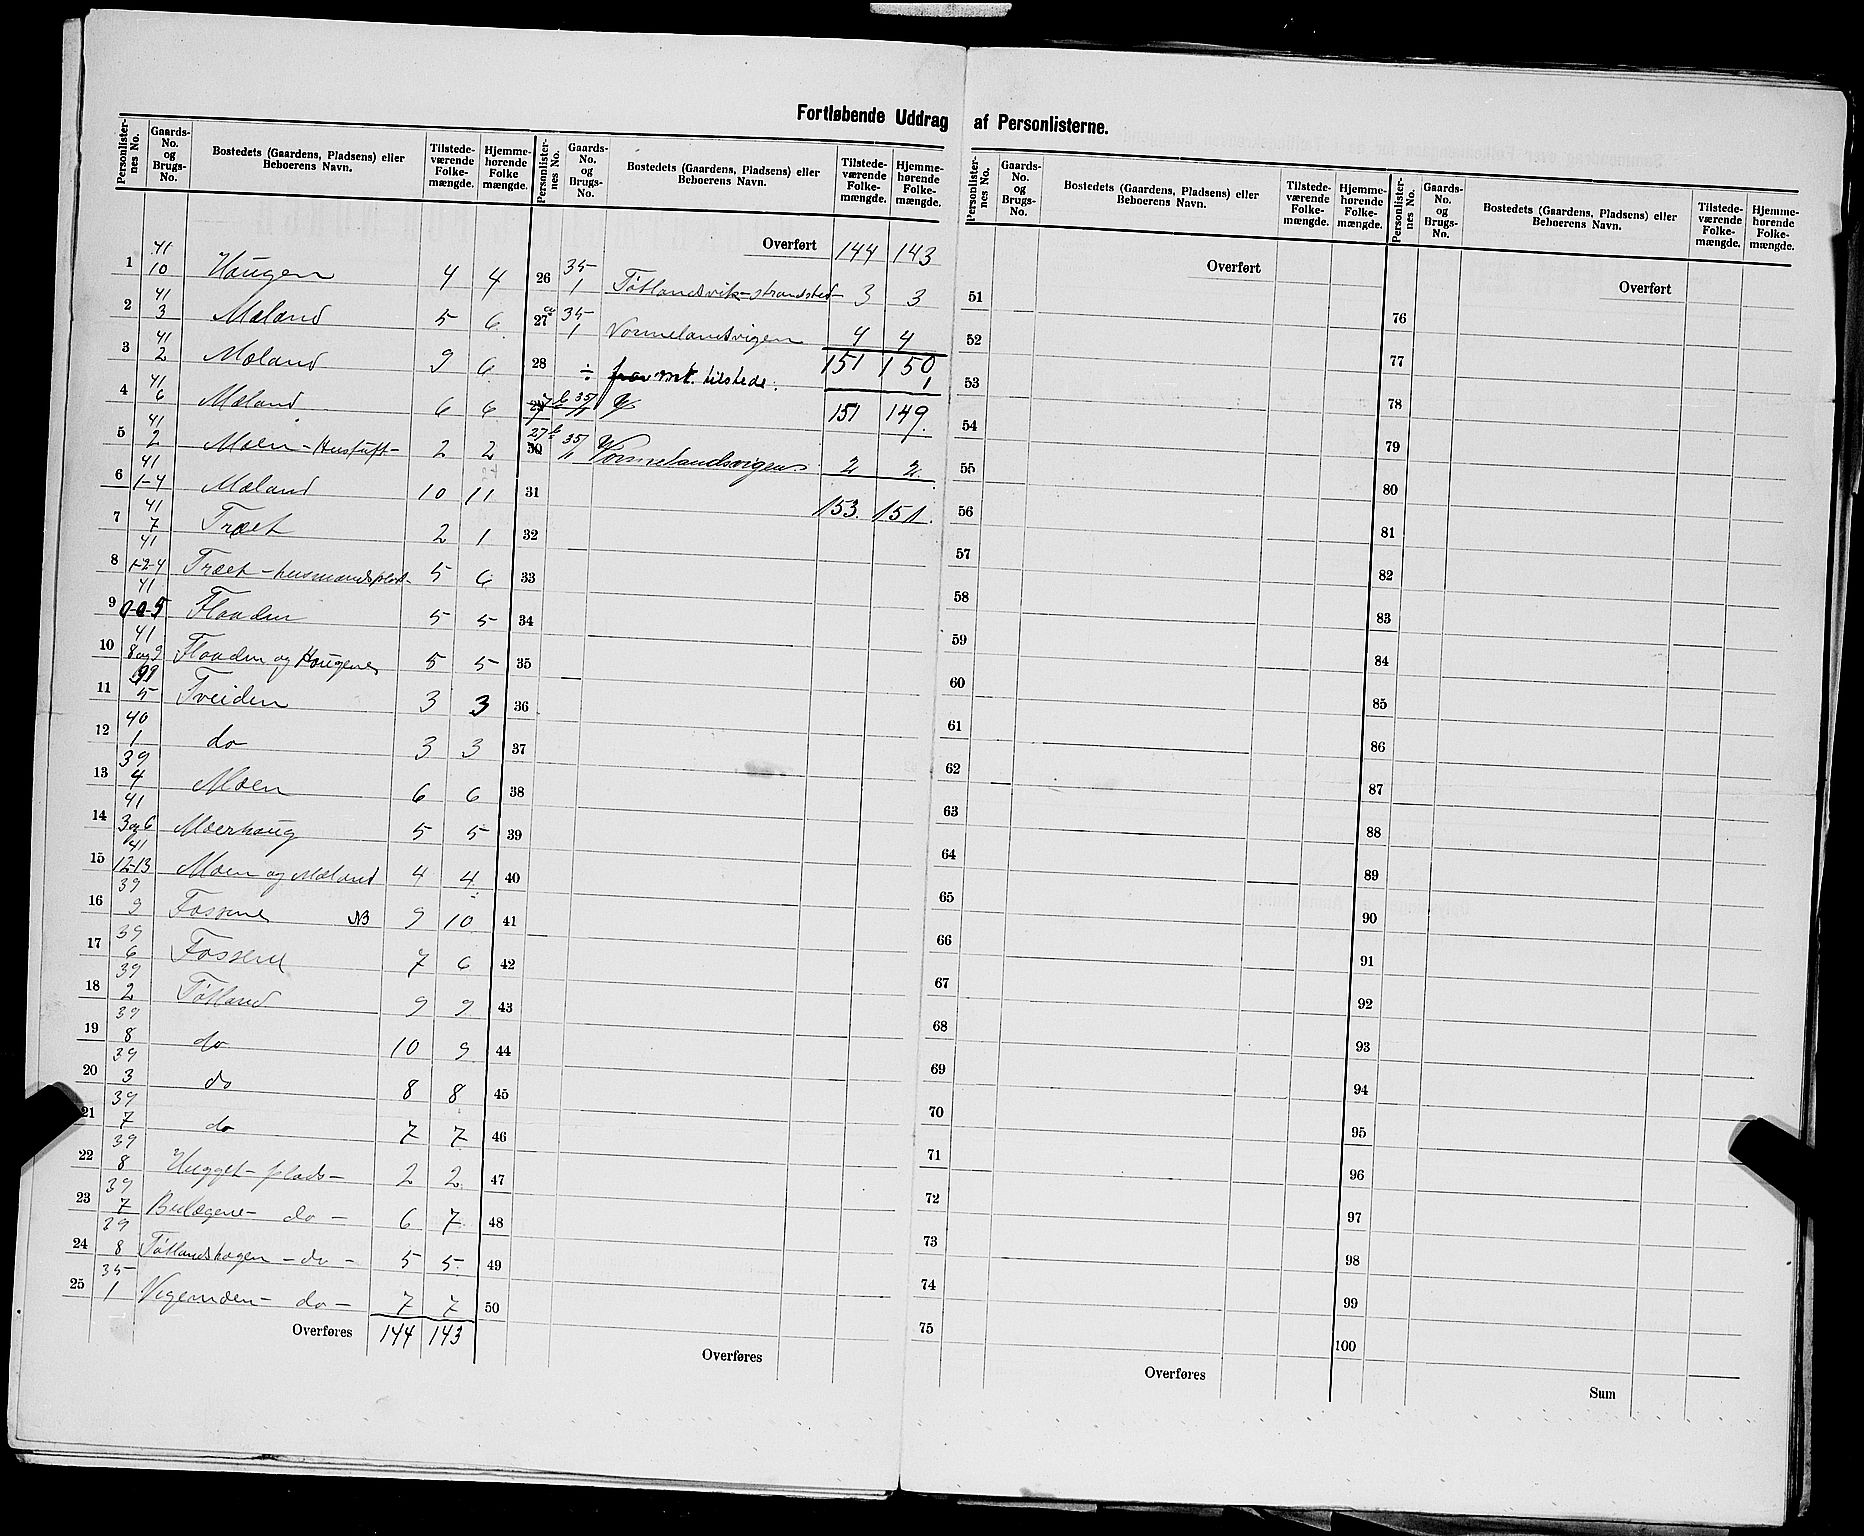 Fortløbende Uddrag af Personlisterne.
Personlister-nes No. | Gaards-No. og Brugs-No. | Bostedets (Gaardens, Pladsens) eller Beboerens Navn. | Tilstede-værende Folke-mængde. | Hjemme-hørende Folke mængde.
1 | 41 10 | Haugen | 4 | 4
2 | 41 3 | Mæland | 5 | 6
3 | 41 2 | Mæland | 9 | 6
4 | 41 6 | Mæland | 6 | 6
5 | 41 2 | Moen - Hustuft - | 2 | 2
6 | 41 1-4 | Mæland | 10 | 11
7 | 41 7 | Træet | 2 | 1
8 | 41 1-2-4 | Træet - husmandsplads - | 5 | 6
9 | 41 5 | Flaaden | 5 | 5
10 | 41 8 og 9 | Flaaden og Haugene | 5 | 5
11 | 5 | Tveiden | 3 | 3
12 | 40 1 | do | 3 | 3
13 | 39 4 | Moen | 6 | 6
14 | 41 3 og 6 | Moerhaug | 5 | 5
15 | 41 12-13 | Moen og Mæland | 4 | 4
16 | 39 9 | Fossene NB | 9 | 10
17 | 39 6 | Fossene | 7 | 6
18 | 39 2 | Tøtland | 9 | 9
19 | 39 8 | do | 10 | 9
20 | 39 3 | do | 8 | 8
21 | 39 7 | do | 7 | 7
22 | 39 8 | Hugget - plads - | 2 | 2
23 | 39 7 | Bulægene - do - | 6 | 7
24 | 39 8 | Tøtlandshagen - do - | 5 | 5
25 | 35 1 | Vigemoen - do - | 7 | 7
Overføres | 144 | 143
Personlister-nes No. | Gaards-No. og Brugs-No. | Bostedets (Gaardens, Pladsens) eller Beboerens Navn. | Tilstede-værende Folke-mængde. | Hjemme-hørende Folke-mængde.
Overført | 144 | 143
26 | 35 1 | Tøtlandsvik - strandsted - | 3 | 3
27 a | 35 1 | Vormelandsvigen | 4 | 4
151 | 150
28 | ÷ mt. tilstede. | 1
29 | 151 | 149.
27 b 30 | 35/1 | Vormelandsvigen | 2 | 2
31 | 153. | 151.
32
33
34
35
36
37
38
39
40
41
42
43
44
45
46
47
48
49
50
Overføres
Personlister-nes No. | Gaards-No. og Brugs-No. | Bostedets (Gaardens, Pladsens) eller Beboerens Navn. | Tilstede-værende Folke-mængde. | Hjemme-hørende Folke-mængde.
Overført
51
52
53
54
55
56
57
58
59
60
61
62
63
64
65
66
67
68
69
70
71
72
73
74
75
Overføres
Personlister-nes No. | Gaards-No. og Brugs-No. | Bostedets (Gaardens, Pladsens) eller Beboerens Navn. | Tilstede-værende Folke-mængde. | Hjemme-hørende Folke-mængde.
Overført
76
77
78
79
80
81
82
83
84
85
86
87
88
89
90
91
92
93
94
95
96
97
98
99
100
Sum